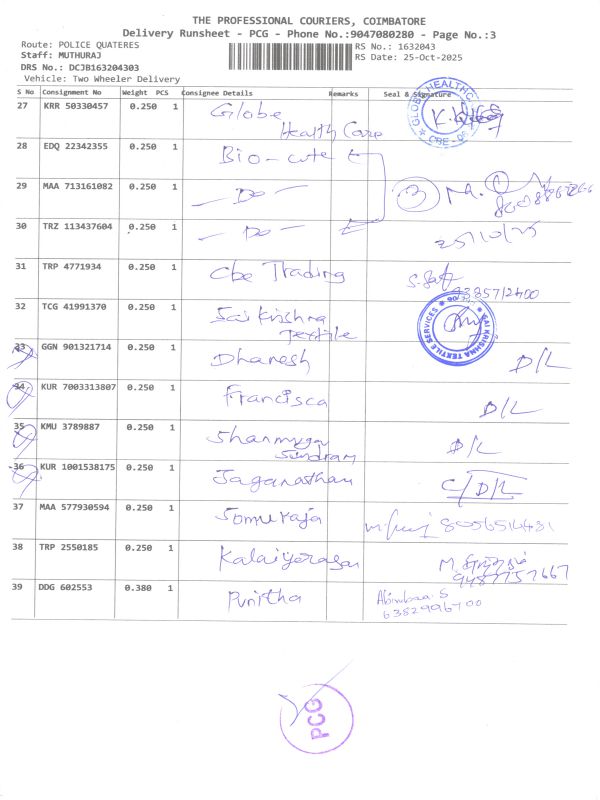 THE PROFESSIONAL COURIERS, COIMBATORE
Delivery Runsheet - PCG - Phone No.:9047080280 - Page No.:3
Route: POLICE QUATERES
Staff: MUTHURAJ
DRS No.: DCJB163204303
Vehicle: Two Wheeler Delivery
RS No.: 1632043
RS Date: 25-Oct-2025
S No Consignment No Weight PCS Consignee Details Remarks Seal & Signature
27 KRR 50330457 0.250 1 Globe Health Care
GLOBE HEALTHC
CBE
28 EDQ 22342355 0.250 1 Bio-cute
29 MAA 713161082 0.250 1 - Do - 3
30 TRZ 113437604 0.250 1 - Do - 25/10/25
31 TRP 4771934 0.250 1 Cbe Trading 9385712400
32 TCG 41991370 0.250 1 Sai Krishna Textile
SAI KRISHNA TEXTILE SERVICES
33 GGN 901321714 0.250 1 Dhanesh D/L
34 KUR 7003313807 0.250 1 Francisca D/L
35 KMU 3789887 0.250 1 Shanmuga Sundram D/L
36 KUR 1001538175 0.250 1 Jaganathan C/D/L
37 MAA 577930594 0.250 1 Somuraja 8056514431
38 TRP 2550185 0.250 1 Kalaiyarasan M. 9487757667
39 DDG 602553 0.380 1 Punitha 6382996700
PCG